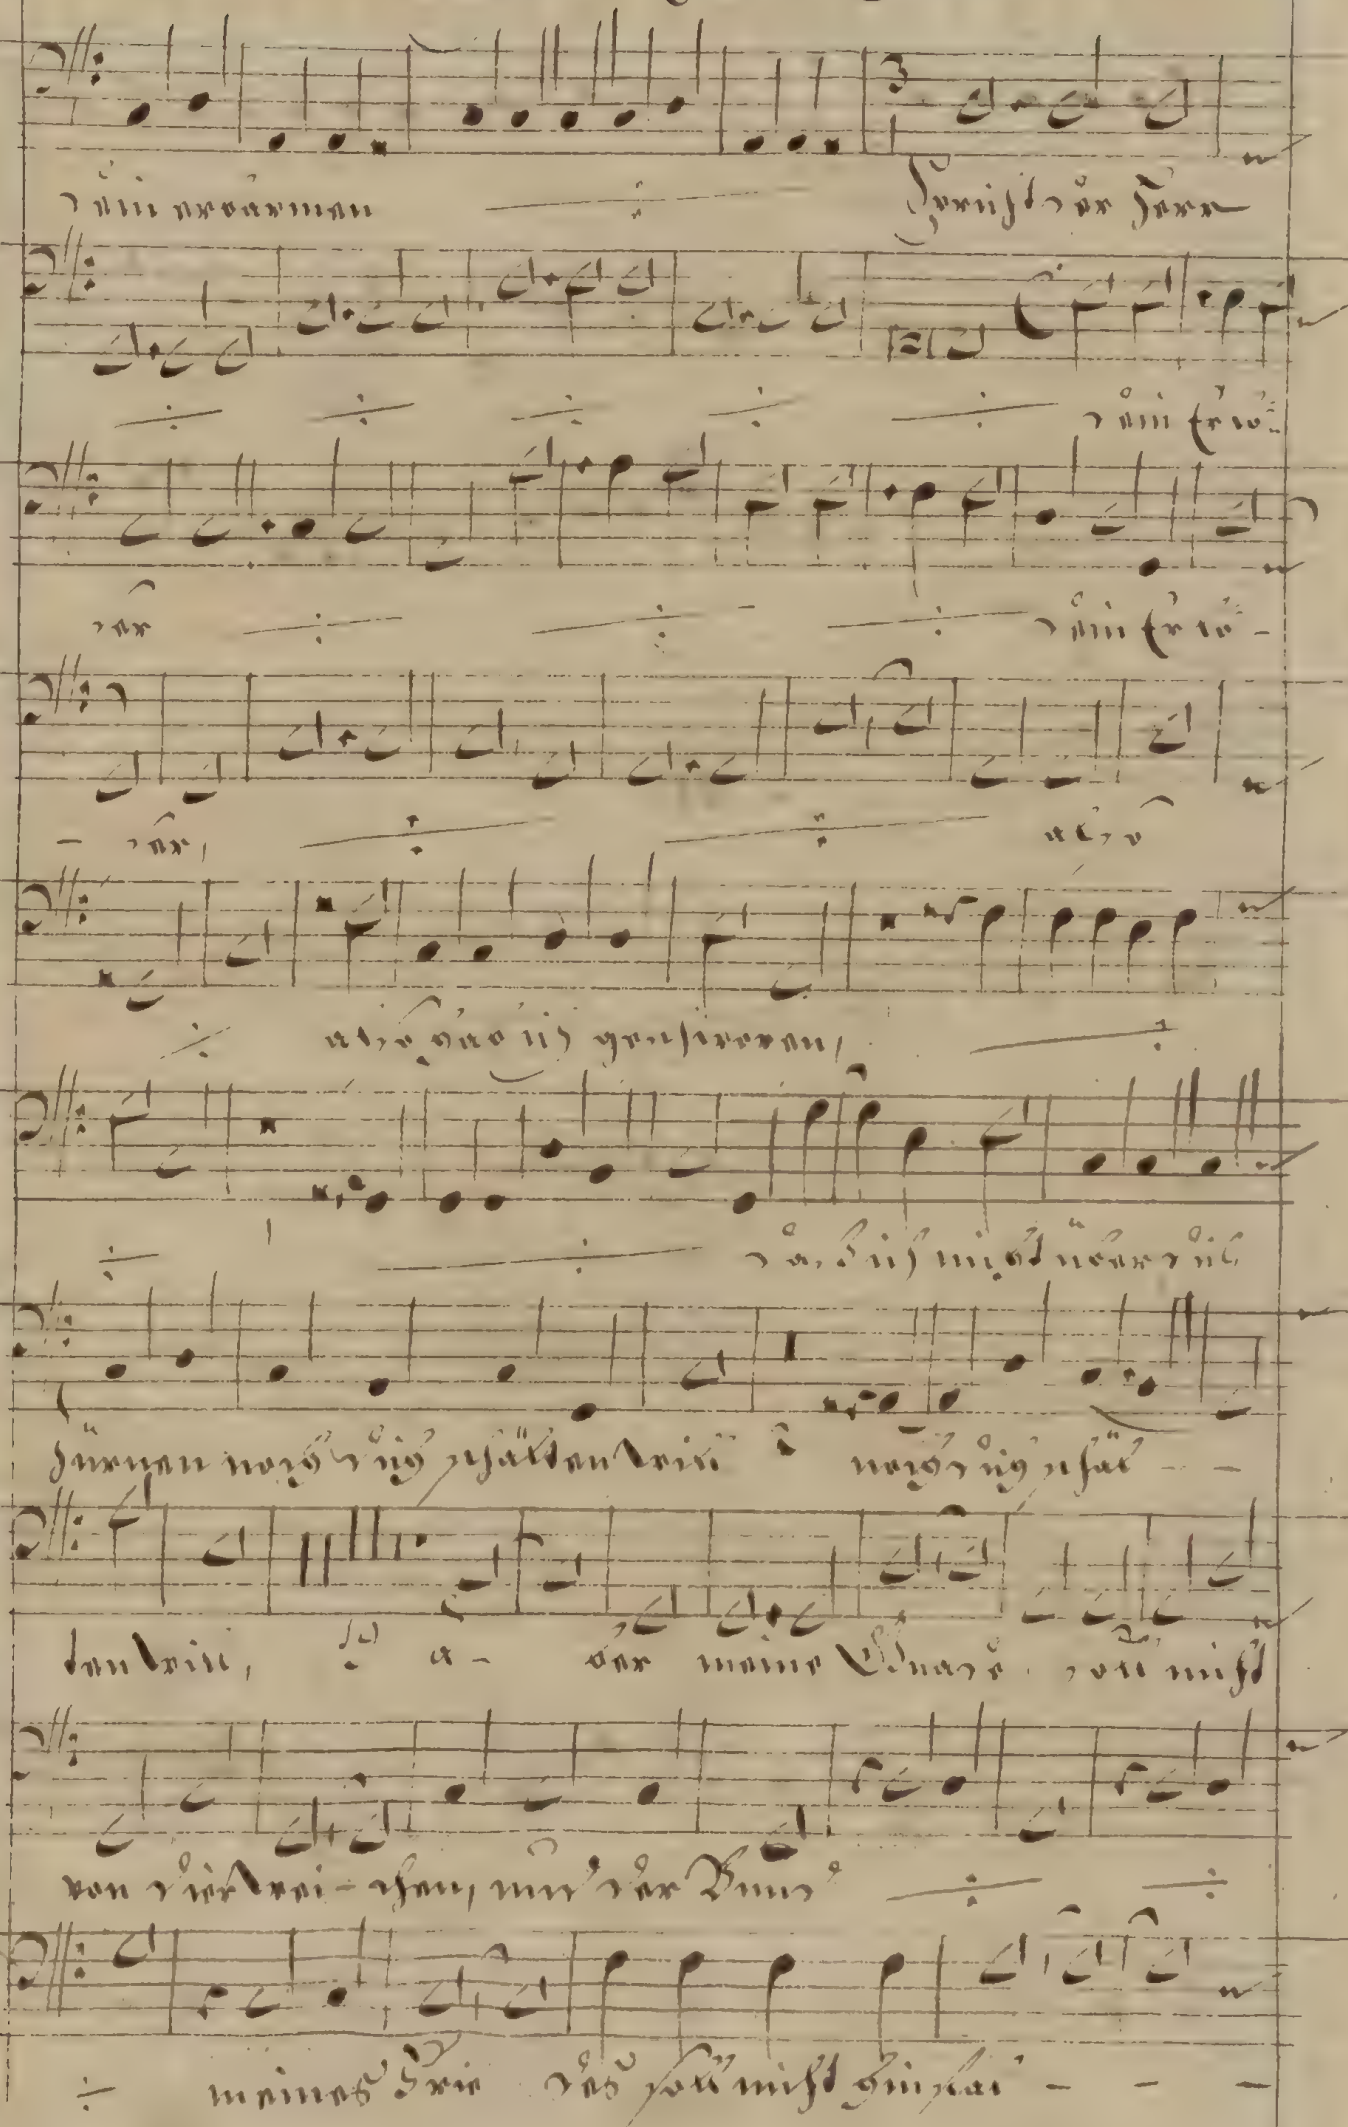 dein erbarmen ÷ spricht der Herr
÷ ÷ ÷ ÷ ÷ dein Erlö-
ser ÷ ÷ ÷ dein Erlö-
- ser, ÷ ÷ also
÷ also hab ich geschworen, ÷
÷ ÷ das ich nicht über dich
zürnen noch dich schälten will noch dich schäl - -
ten will, a- ber meine Gnade soll nicht
von dir wei- chen, und der Bund ÷ ÷
÷ meines Frie des soll nicht hinfal - - -